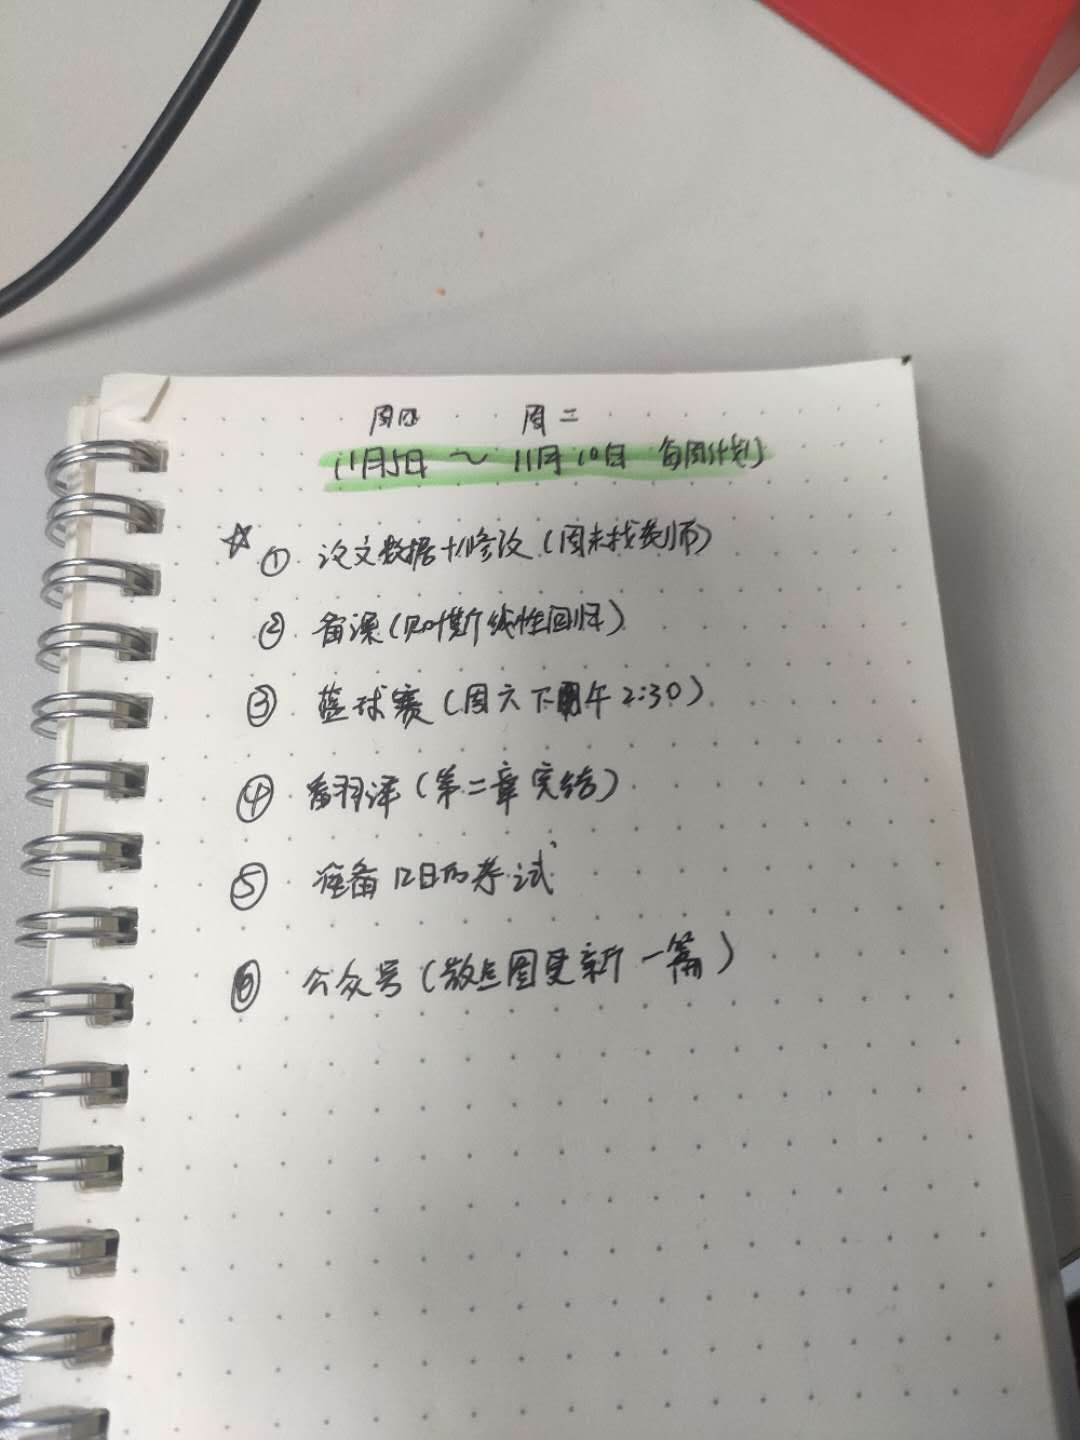 周四 周二
11月5日 ~ 11月10日 每周计划
☆ ① 论文数据+修改(周末找老师)
② 备课(贝叶斯线性回归)
③ 篮球赛(周六下午2:30)
④ 翻译(第二章完结)
⑤ 准备12日的考试
⑥ 公众号(散点图更新一篇)